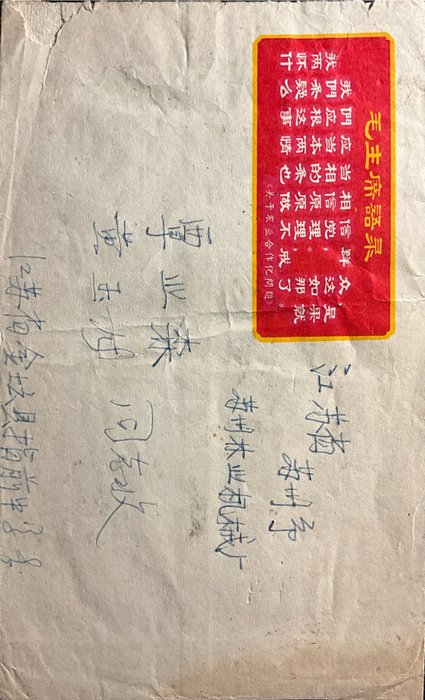 毛主席語录
我們应当相信群众，
我們应当相信党，这是
两条根本的原理。如果
怀疑这两条原理，那就
什么事情也做不成了。
《关于农业合作化問題》
江苏省
苏州市
苏州林业机械厂
业森
同志收
江苏省金坛县指前